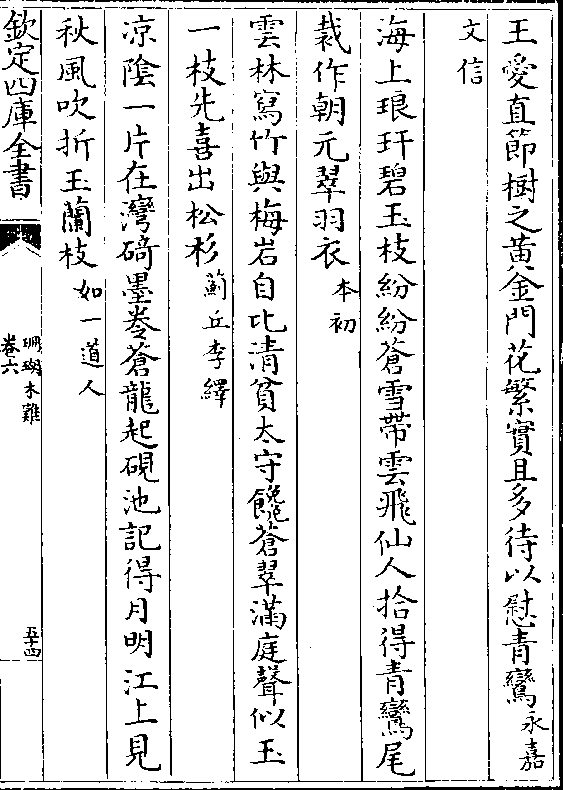 王愛直節樹之黄金門花繁實且多待以慰青鸞永嘉
文信
海上琅玕碧玉枝紛紛蒼雪帶雲飛仙人拾得青鸞尾
裁作朝元翠羽衣本初
雲林寫竹與梅岩自比清貧太守饞蒼翠滿庭聲似玉
一枝先喜出松杉薊丘李繹
凉陰一片在灣碕墨卷蒼龍起硯池記得月明江上見
秋風吹折玉蘭枝如一道人
欽定四庫全書
珊瑚木難
卷六
五十四